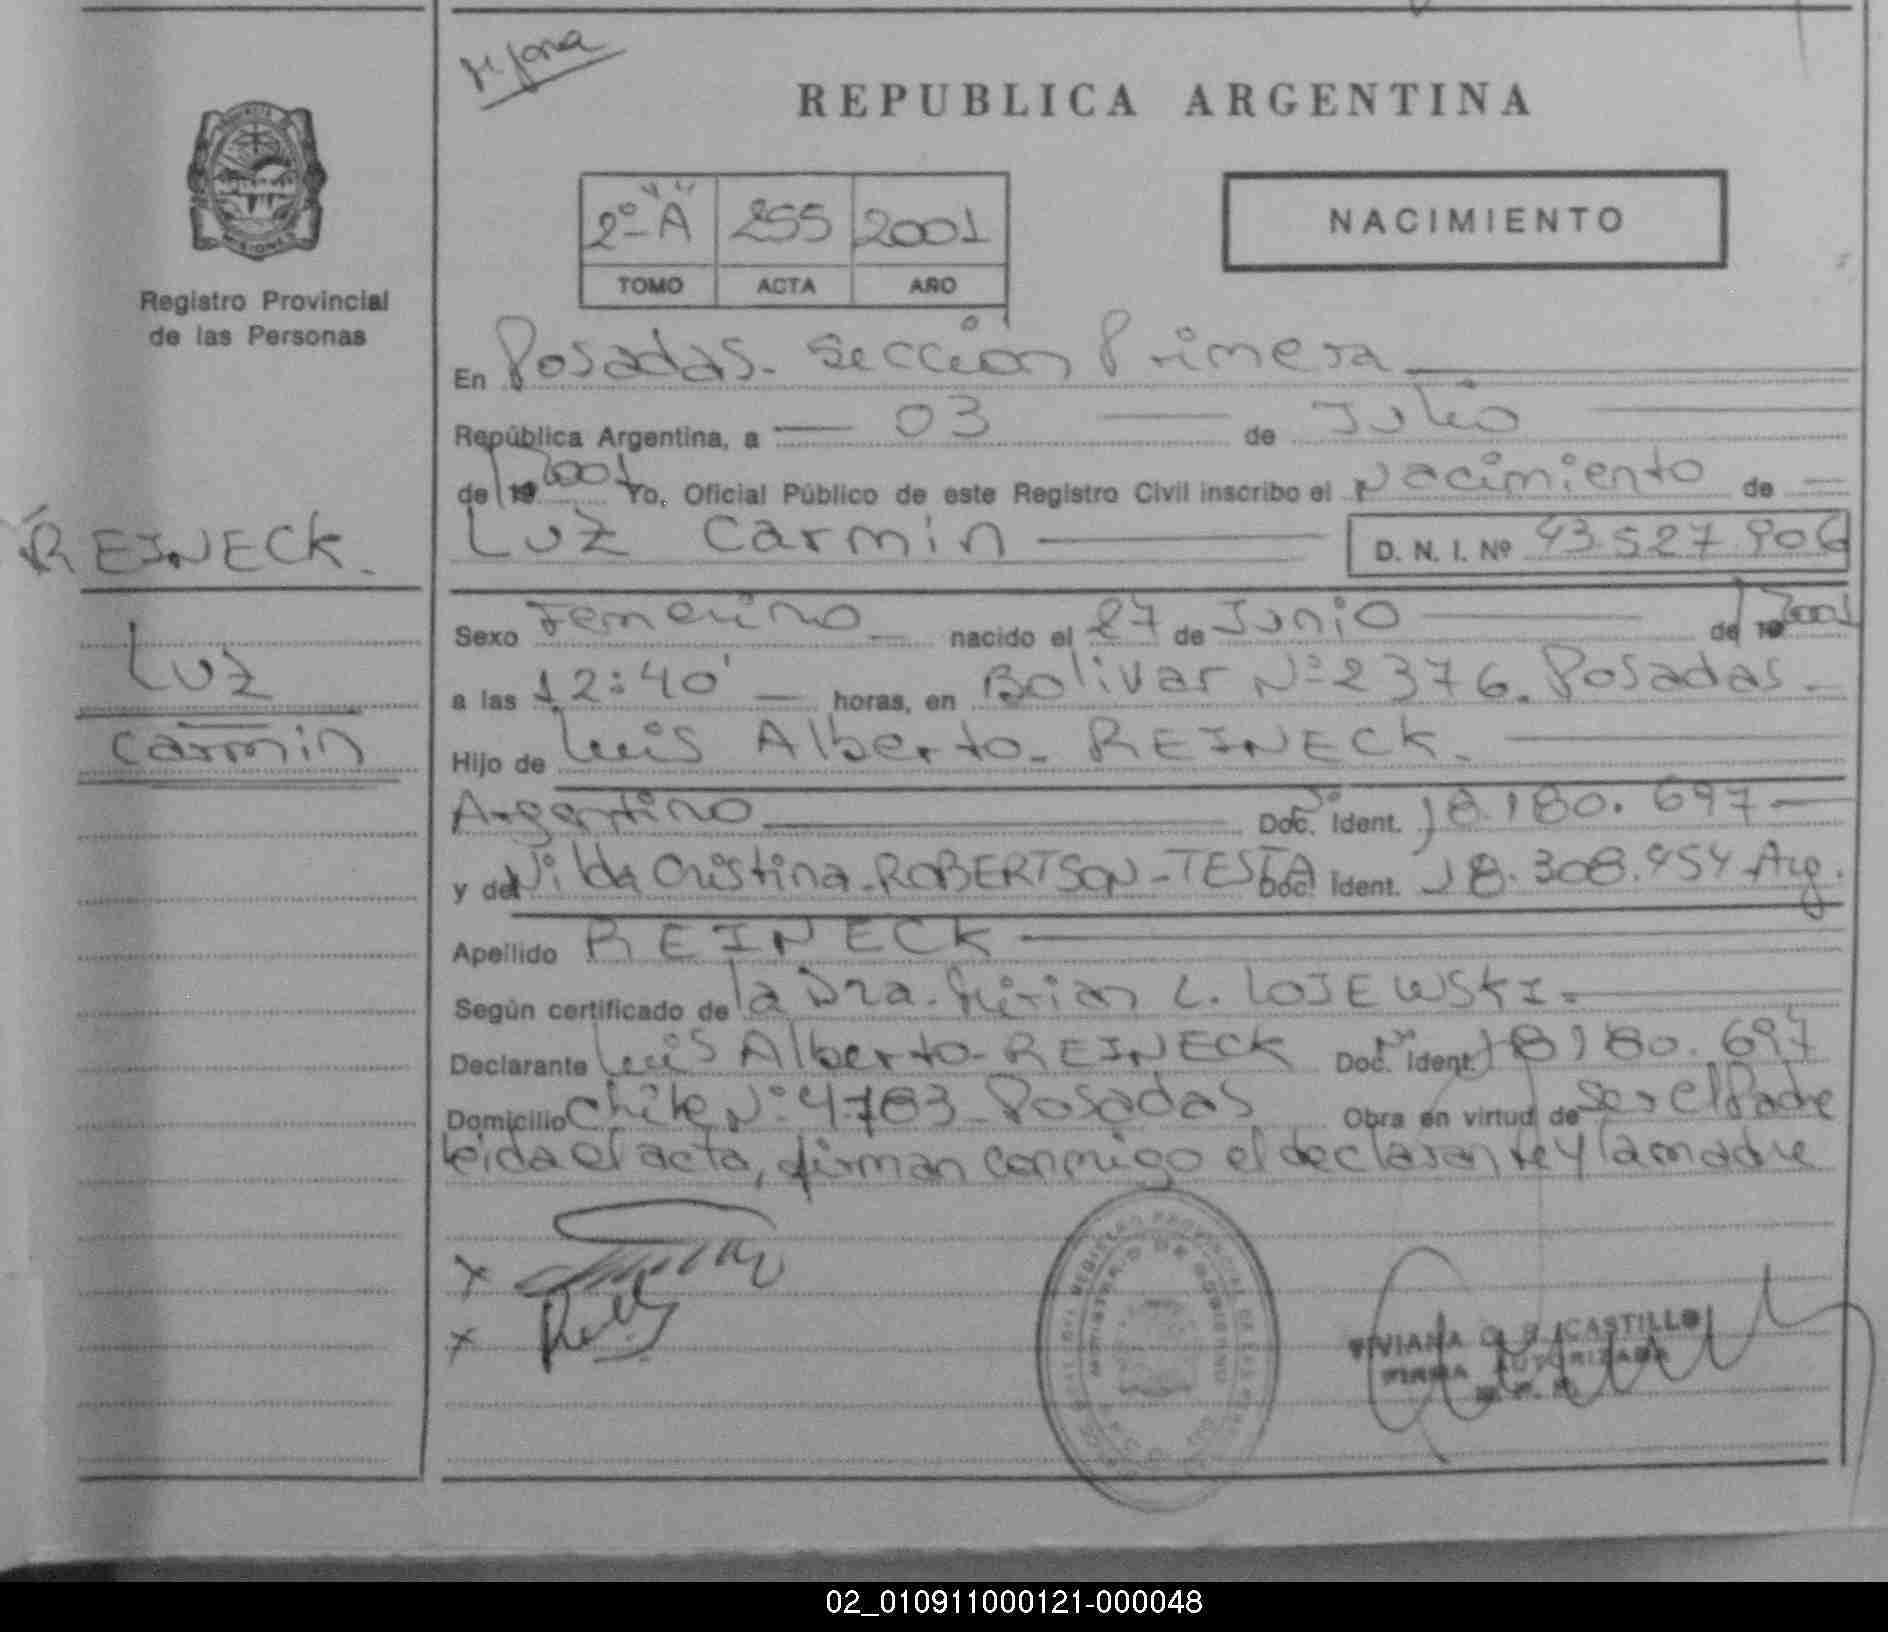 REPUBLICA ARGENTINA
MISIONES
Registro Provincial
de las Personas
2º "A" 255 2001
TOMO ACTA AÑO
NACIMIENTO
En Posadas. Sección Primera
República Argentina, a 03 de Julio
de 19 2001 Yo, Oficial Público de este Registro Civil inscribo el Nacimiento de
Luz Carmin D. N. I. Nº 43.527.906
REINECK.
Luz
Carmin
Sexo Femenino nacido el 27 de Junio de 19 2001
a las 12:40' horas, en Bolivar Nº 2376. Posadas
Hijo de Luis Alberto REINECK.
Argentino Doc. Ident. 18.180.697
y de Nilda Cristina ROBERTSON-TESTA Doc. Ident. 18.308.454 Arg.
Apellido REINECK
Según certificado de la Dra. Mirian L. LOJEWSKI.
Declarante Luis Alberto REINECK Doc. Ident. 18180.697
Domicilio Chile Nº 4783 Posadas Obra en virtud de ser el Padre
leida el acta, firman conmigo el declarante y la madre
REGISTRO PROVINCIAL DE LAS PERSONAS
MINISTERIO DE GOBIERNO
VIVIANA CASTILLO
FIRMA AUTORIZADA
02_010911000121-000048